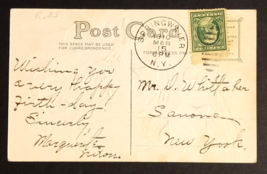 Post Card
THIS SPACE MAY BE USED FOR CORRESPONDENCE.
SPRINGWATER,
MAR
15
6 PM
N.Y.
Wishing you
a very happy
birth-day
Sincerly
Marguerite
Mr. D. Whittaker
Sanova
New York.